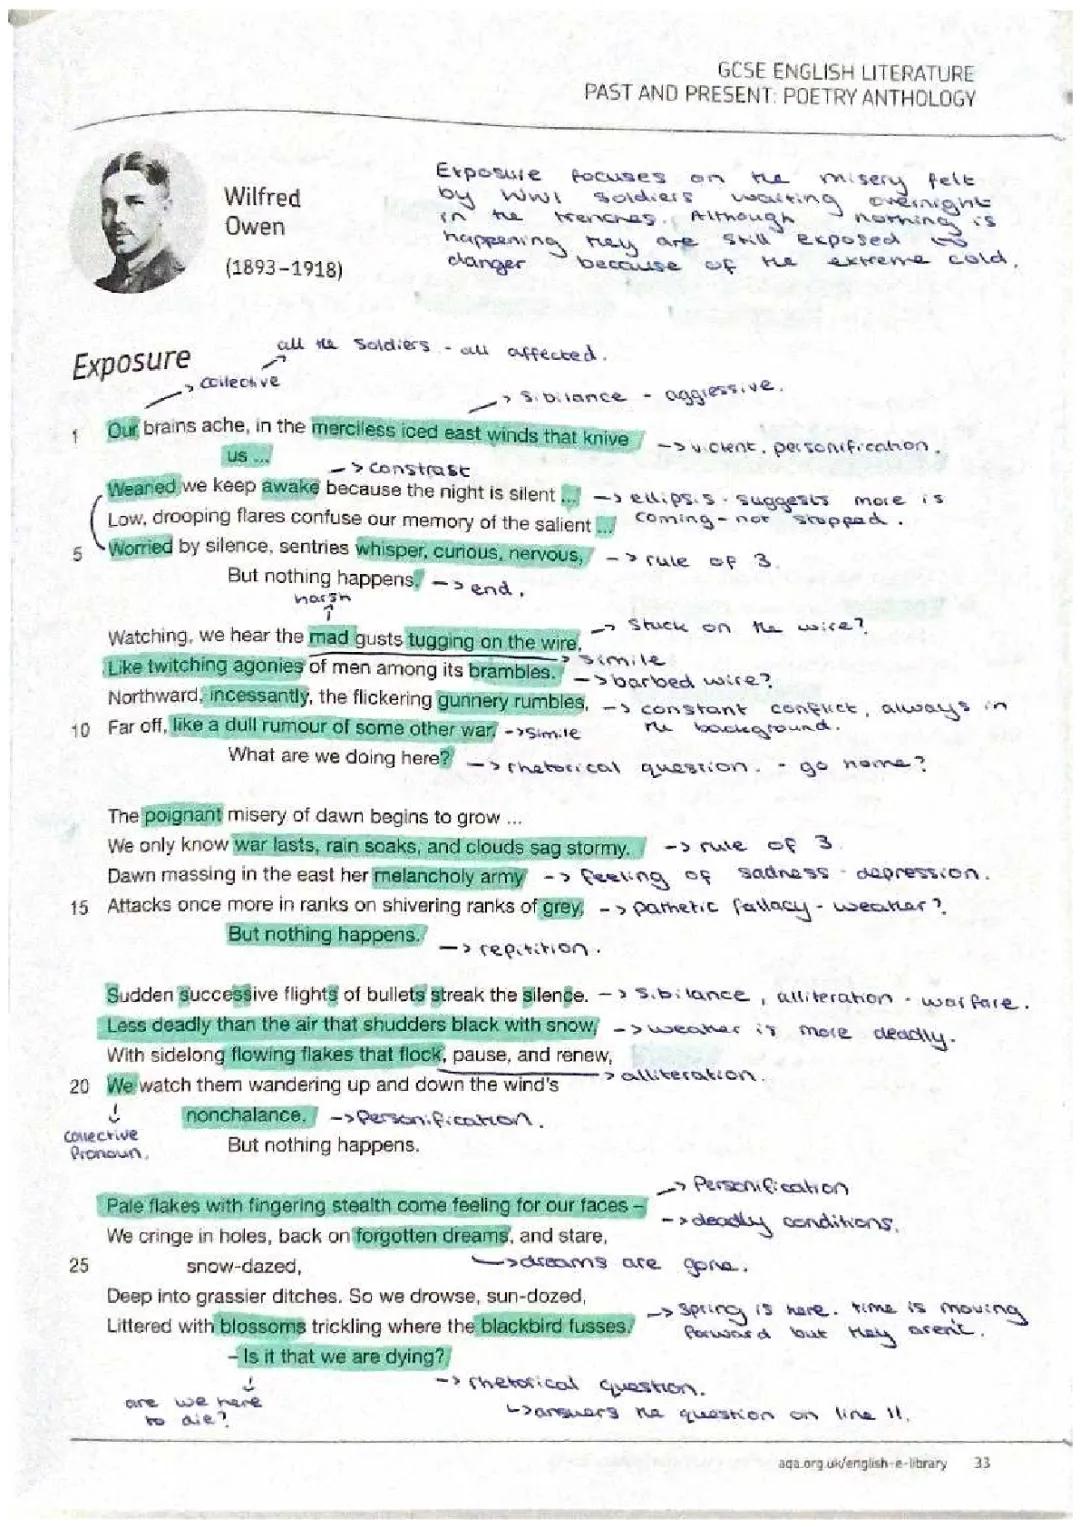 GCSE ENGLISH LITERATURE
PAST AND PRESENT: POETRY ANTHOLOGY
Wilfred
Owen
(1893–1918)
Exposure focuses on the misery felt
by WW1 soldiers waiting overnight
in the trenches. Although nothing is
happening they are still exposed to
danger because of the extreme cold.
Exposure
all the soldiers - all affected.
-> collective
-> sibilance - aggressive.
1 Our brains ache, in the merciless iced east winds that knive
us ...
-> violent, personification.
-> constrast
Wearied we keep awake because the night is silent ...
-> ellipsis. suggests more is
coming - not stopped.
Low, drooping flares confuse our memory of the salient ...
5 Worried by silence, sentries whisper, curious, nervous,
-> rule of 3.
But nothing happens. -> end.
harsh
Watching, we hear the mad gusts tugging on the wire,
-> stuck on the wire?
-> simile
Like twitching agonies of men among its brambles.
-> barbed wire?
Northward, incessantly, the flickering gunnery rumbles,
-> constant conflict, always in
the background.
10 Far off, like a dull rumour of some other war. -> simile
What are we doing here? -> rhetorical question. - go home?
The poignant misery of dawn begins to grow ...
We only know war lasts, rain soaks, and clouds sag stormy. -> rule of 3
Dawn massing in the east her melancholy army -> feeling of sadness - depression.
15 Attacks once more in ranks on shivering ranks of grey, -> pathetic fallacy - weather?
But nothing happens. -> repitition.
Sudden successive flights of bullets streak the silence. -> sibilance, alliteration - warfare.
Less deadly than the air that shudders black with snow, -> weather is more deadly.
With sidelong flowing flakes that flock, pause, and renew,
-> alliteration.
20 We watch them wandering up and down the wind's
nonchalance. -> Personification.
collective
Pronoun.
But nothing happens.
-> Personification
Pale flakes with fingering stealth come feeling for our faces –
-> deadly conditions.
We cringe in holes, back on forgotten dreams, and stare,
25 snow-dazed,
-> dreams are gone.
Deep into grassier ditches. So we drowse, sun-dozed,
Littered with blossoms trickling where the blackbird fusses.
-> spring is here. time is moving
forward but they aren't.
– Is it that we are dying?
-> rhetorical question.
-> answers the question on line 11.
are we here
to die?
aqa.org.uk/english-e-library 33